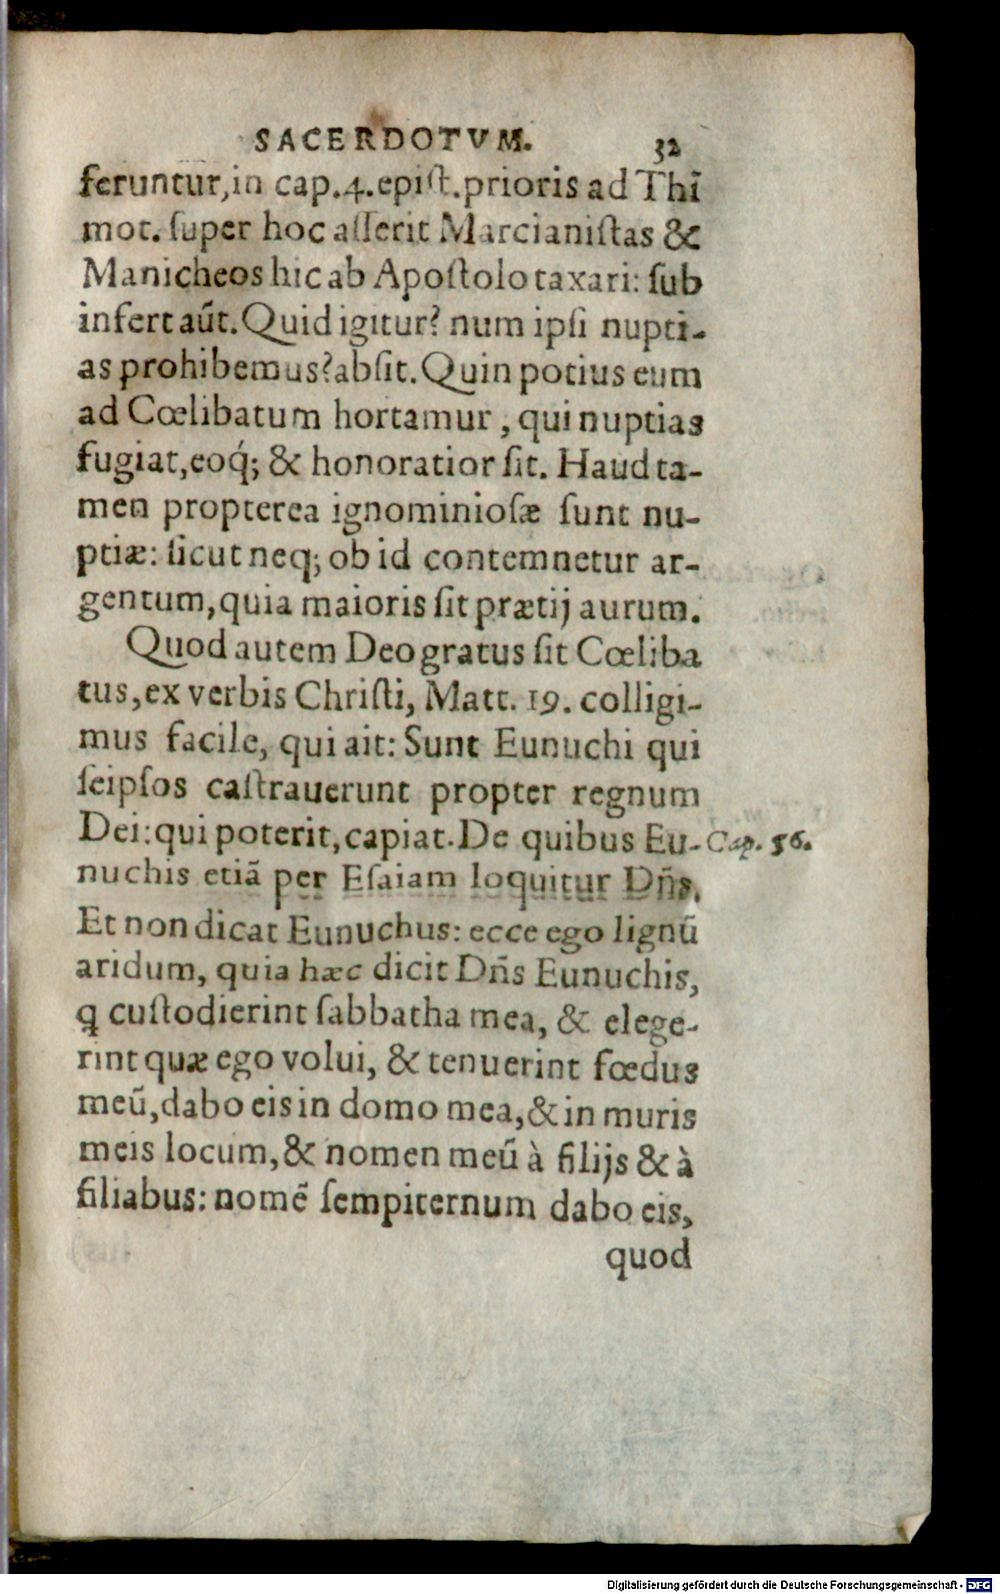 SACERDOTVM. 32
feruntur,in cap.4.epiſt.prioris ad Thī
mot. ſuper hoc aſſerit Marcianiſtas &
Manicheos hic ab Apoſtolo taxari: ſub
infert aūt. Quid igitur? num ipſi nupti-
as prohibemus?abſit. Quin potius eum
ad Cœlibatum hortamur , qui nuptias
fugiat,eoq́; & honoratior ſit. Haud ta-
men propterea ignominioſæ ſunt nu-
ptiæ: ſicut neq; ob id contemnetur ar-
gentum,quia maioris ſit prætij aurum.
Quod autem Deo gratus ſit Cœliba
tus,ex verbis Chriſti, Matt. 19. colligi-
mus facile, qui ait: Sunt Eunuchi qui
ſeipſos caſtrauerunt propter regnum
Dei: qui poterit, capiat. De quibus Eu- Cap. 56.
nuchis etiā per Eſaiam loquitur Dñs.
Et non dicat Eunuchus: ecce ego lignū
aridum, quia hæc dicit Dñs Eunuchis,
ꝗ cuſtodierint ſabbatha mea, & elege-
rint quæ ego volui, & tenuerint fœdus
meū,dabo eis in domo mea,& in muris
meis locum,& nomen meū à filijs & à
filiabus: nomē ſempiternum dabo eis,
quod
Digitalisierung gefördert durch die Deutsche Forschungsgemeinschaft - DFG